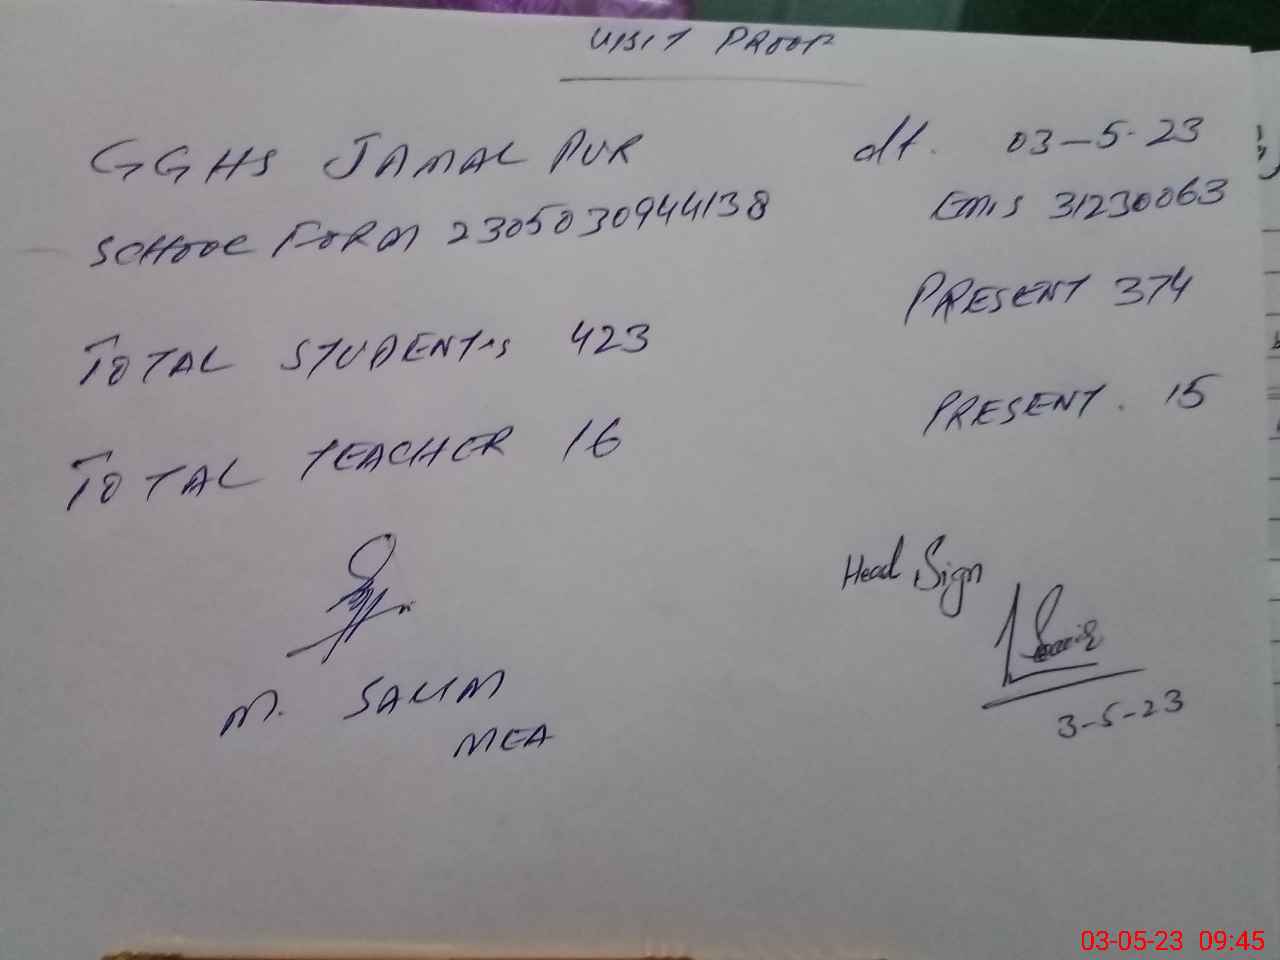 VISIT PROOF
GGHS JAMAL PUR dt. 03-5-23
SCHOOL FORM 2305030944138 Emis 31230063
TOTAL STUDENTS 423 PRESENT 374
TOTAL TEACHER 16 PRESENT. 15
Head Sign
M. SALIM
MEA
3-5-23
03-05-23 09:45